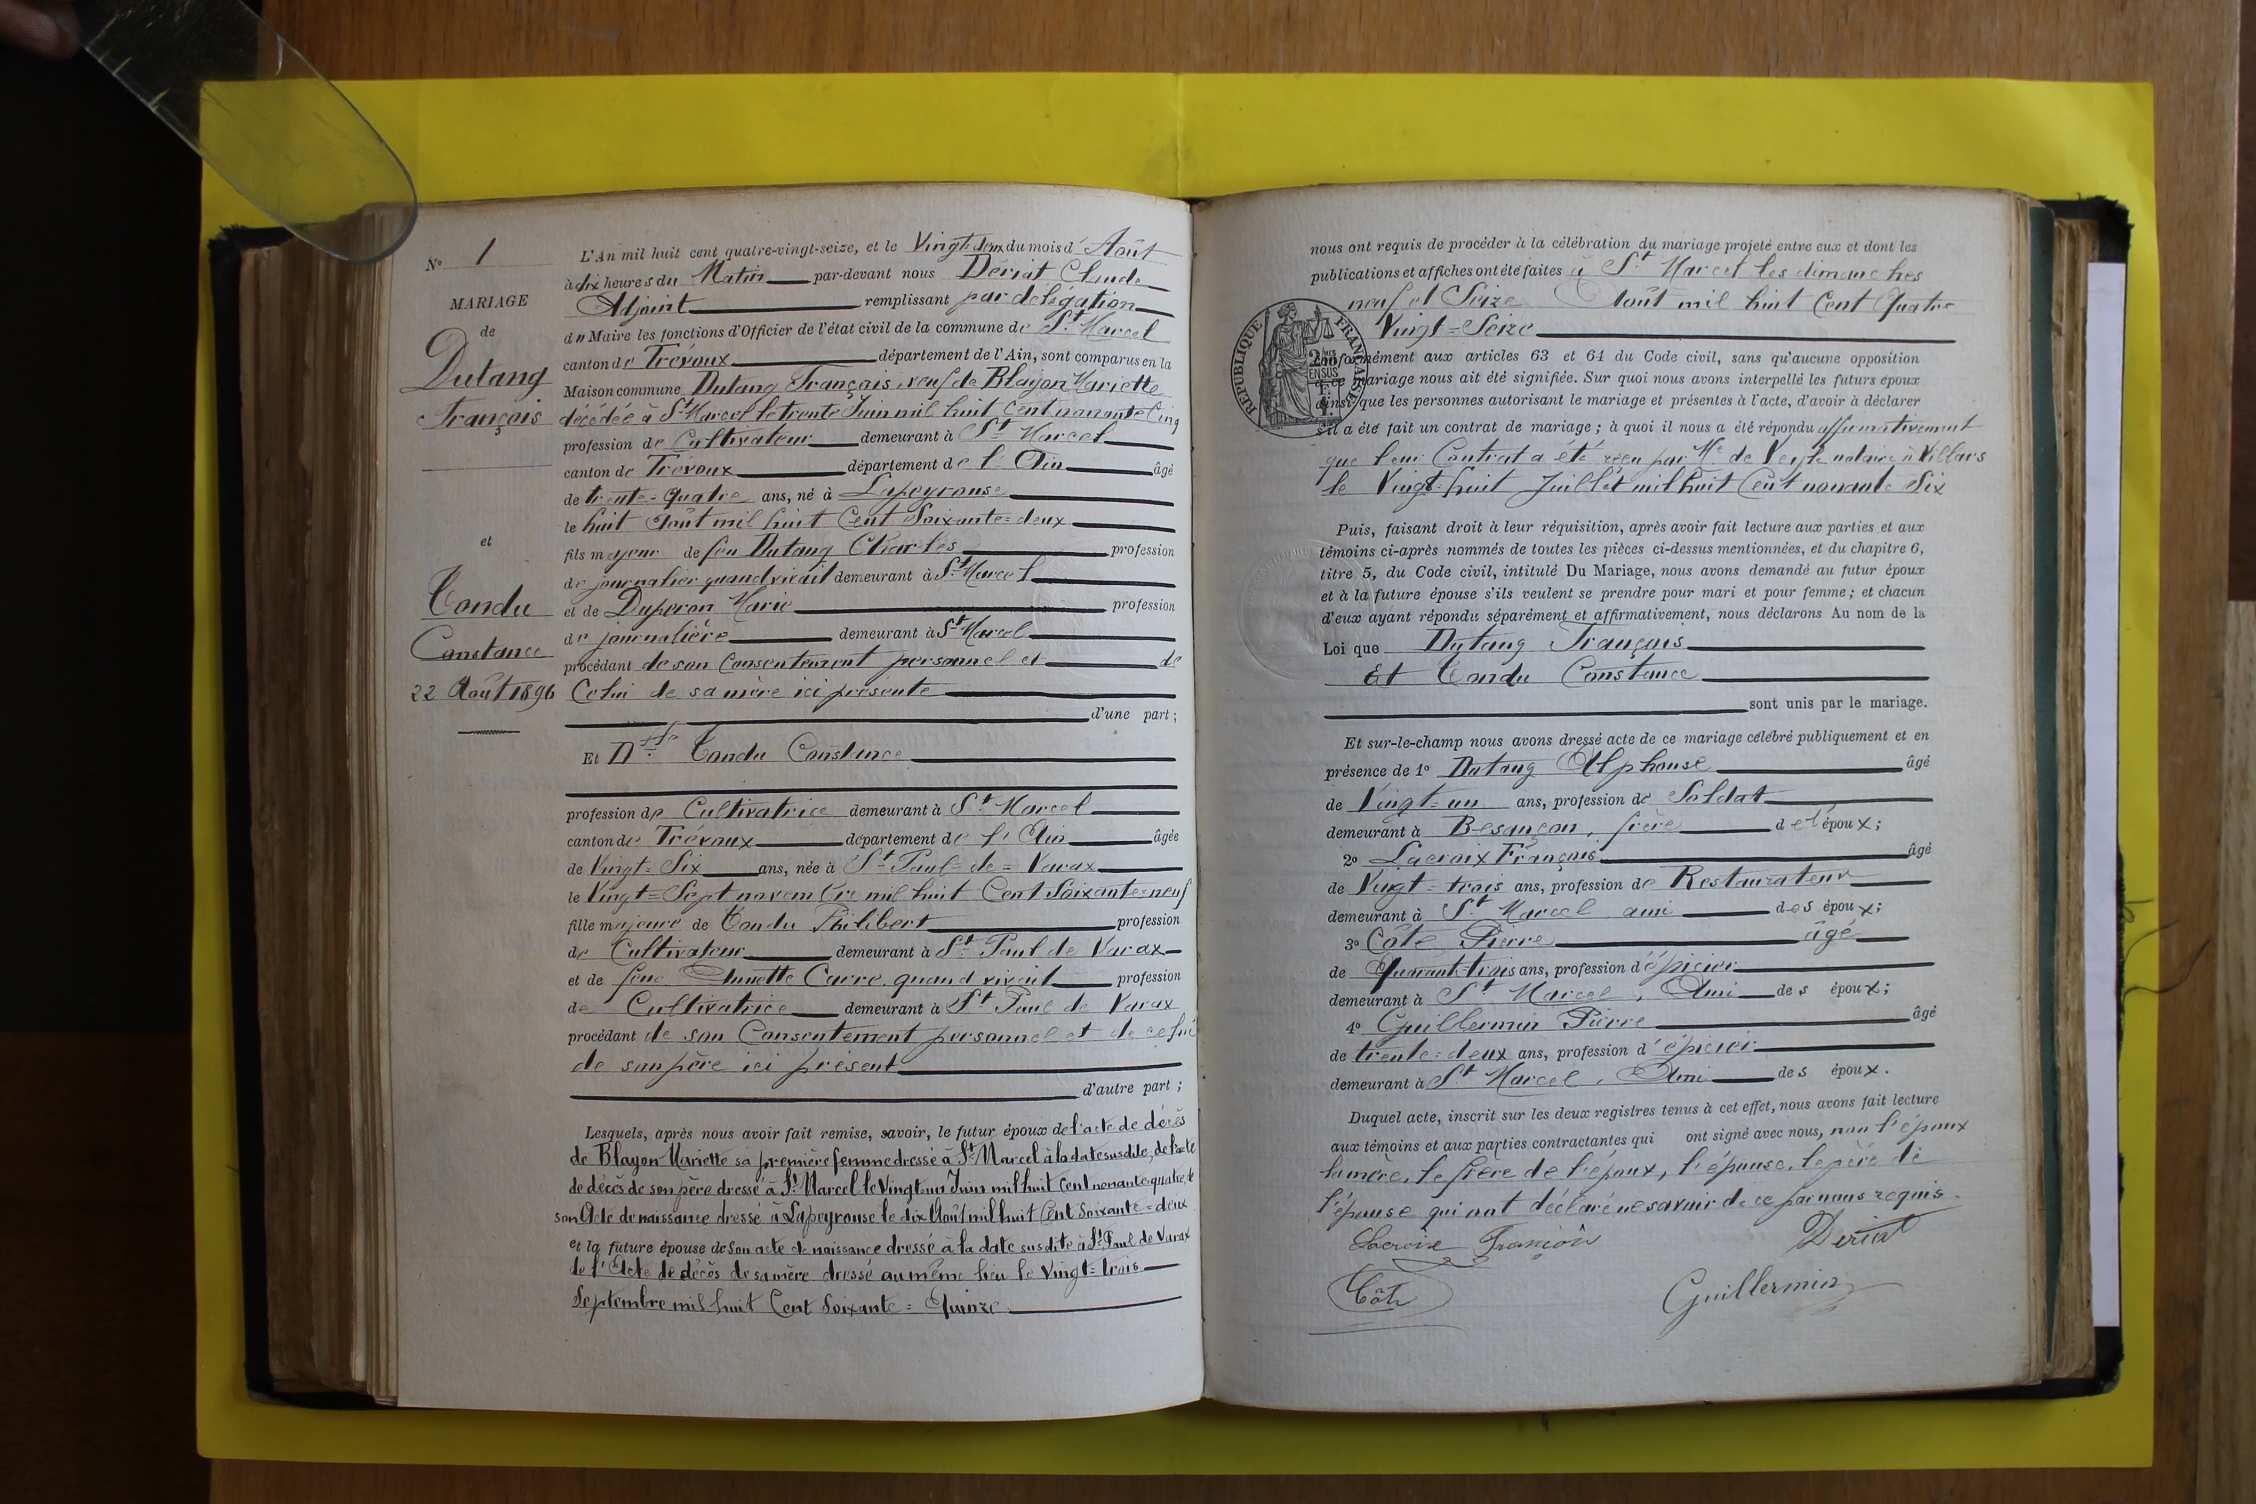 N° 1
MARIAGE
de
Dutang
François
et
Tondu
Constance
22 Août 1896
L'An mil huit cent quatre-vingt-seize, et le Vingt-deux du mois d'Août
à dix heures du Matin par-devant nous Dériat Claude
Adjoint remplissant par délégation
du Maire les fonctions d'Officier de l'état civil de la commune de St Marcel
canton de Trévoux département de l'Ain, sont comparus en la
Maison commune Dutang François veuf de Blayon Mariette
décédée à St Marcel le trente Juin mil huit cent nonante Cinq
profession de Cultivateur demeurant à St Marcel
canton de Trévoux département de l'Ain âgé
de trente-quatre ans, né à Lapeyrouse
le huit Août mil huit Cent Soixante-deux
fils majeur de feu Dutang Charles profession
de journalier quand vivait demeurant à St Marcel
et de Duperon Marie profession
de journalière demeurant à St Marcel
procédant de son Consentement personnel et de
Celui de sa mère ici présente
d'une part;
Et Dlle Tondu Constance
profession de Cultivatrice demeurant à St Marcel
canton de Trévoux département de l'Ain âgée
de Vingt-Six ans, née à St Paul-de-Varax
le Vingt-Sept novembre mil huit Cent Soixante-neuf
fille majeure de Tondu Philibert profession
de Cultivateur demeurant à St Paul de Varax
et de feue Annette Carre quand vivait profession
de Cultivatrice demeurant à St Paul de Varax
procédant de son Consentement personnel et de celui
de son père ici présent
d'autre part;
Lesquels, après nous avoir fait remise, savoir, le futur époux de l'acte de décès
de Blayon Mariette sa première femme dressé à St Marcel à la date susdite, de l'acte
de décès de son père dressé à St Marcel le Vingt-un Juin mil huit Cent nonante-quatre, de
son Acte de naissance dressé à Lapeyrouse le dix Août mil huit Cent Soixante-deux
et la future épouse de Son acte de naissance dressé à la date susdite à St Paul de Varax
de l'Acte de décès de sa mère dressé au même lieu le vingt-trois
Septembre mil huit Cent Soixante-Quinze
nous ont requis de procéder à la célébration du mariage projeté entre eux et dont les
publications et affiches ont été faites à St Marcel les dimanches
neuf et Seize Août mil huit Cent Quatre
Vingt-Seize
RÉPUBLIQUE FRANÇAISE
conformément aux articles 63 et 64 du Code civil, sans qu'aucune opposition
à ce mariage nous ait été signifiée. Sur quoi nous avons interpellé les futurs époux
ainsi que les personnes autorisant le mariage et présentes à l'acte, d'avoir à déclarer
s'il a été fait un contrat de mariage; à quoi il nous a été répondu affirmativement
que leur Contrat a été reçu par Me de Veyle notaire à Villars
le Vingt-huit Juillet mil huit Cent nonante Six
Puis, faisant droit à leur réquisition, après avoir fait lecture aux parties et aux
témoins ci-après nommés de toutes les pièces ci-dessus mentionnées, et du chapitre 6,
titre 5, du Code civil, intitulé Du Mariage, nous avons demandé au futur époux
et à la future épouse s'ils veulent se prendre pour mari et pour femme; et chacun
d'eux ayant répondu séparément et affirmativement, nous déclarons Au nom de la
Loi que Dutang François
Et Tondu Constance
sont unis par le mariage.
Et sur-le-champ nous avons dressé acte de ce mariage célébré publiquement et en
présence de 1° Dutang Alphonse âgé
de Vingt-un ans, profession de Soldat
demeurant à Besançon, frère de l'époux;
2° Lacroix François âgé
de Vingt-trois ans, profession de Restaurateur
demeurant à St Marcel ami des époux;
3° Côte Pierre âgé
de Quarante-trois ans, profession d'épicier
demeurant à St Marcel, Ami des époux;
4° Guillermin Pierre âgé
de trente-deux ans, profession d'épicier
demeurant à St Marcel, Ami des époux.
Duquel acte, inscrit sur les deux registres tenus à cet effet, nous avons fait lecture
aux témoins et aux parties contractantes qui ont signé avec nous, non l'époux
la mère, le frère de l'époux, l'épouse, le père de
l'épouse qui ont déclaré ne savoir de ce par nous requis.
Lacroix François Dériat
Côte Guillermin